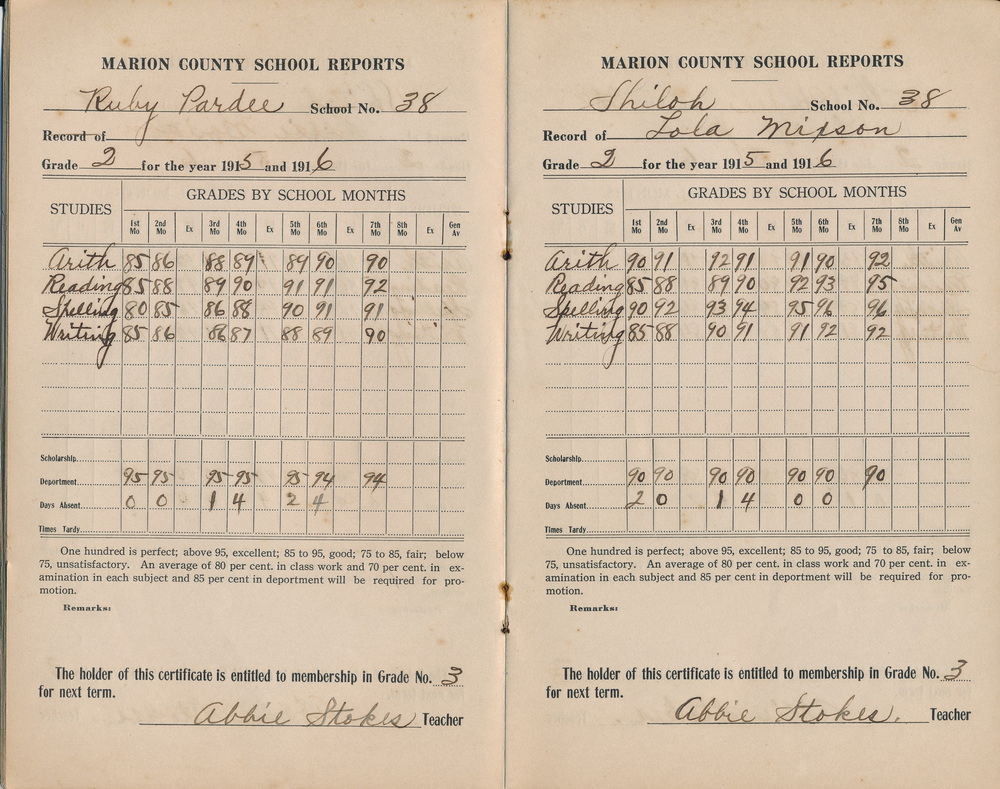 MARION COUNTY SCHOOL REPORTS
Ruby Pardee School No. 38
Record of
Grade 2 for the year 1915 and 1916
STUDIES GRADES BY SCHOOL MONTHS
1st Mo 2nd Mo Ex 3rd Mo 4th Mo Ex 5th Mo 6th Mo Ex 7th Mo 8th Mo Ex Gen Av
Arith 85 86 88 89 89 90 90
Reading 85 88 89 90 91 91 92
Spelling 80 85 86 88 90 91 91
Writing 85 86 86 87 88 89 90
Scholarship
Department 95 95 95 95 95 94 94
Days Absent 0 0 1 4 2 4
Times Tardy
One hundred is perfect; above 95, excellent; 85 to 95, good; 75 to 85, fair; below
75, unsatisfactory. An average of 80 per cent. in class work and 70 per cent. in ex-
amination in each subject and 85 per cent in deportment will be required for pro-
motion.
Remarks:
The holder of this certificate is entitled to membership in Grade No. 3
for next term.
Abbie Stokes Teacher
MARION COUNTY SCHOOL REPORTS
Shiloh School No. 38
Record of Lola Mixson
Grade 2 for the year 1915 and 1916
STUDIES GRADES BY SCHOOL MONTHS
1st Mo 2nd Mo Ex 3rd Mo 4th Mo Ex 5th Mo 6th Mo Ex 7th Mo 8th Mo Ex Gen Av
Arith 90 91 92 91 91 90 92
Reading 85 88 89 90 92 93 95
Spelling 90 92 93 94 95 96 96
Writing 85 88 90 91 91 92 92
Scholarship
Department 90 90 90 90 90 90 90
Days Absent 2 0 1 4 0 0
Times Tardy
One hundred is perfect; above 95, excellent; 85 to 95, good; 75 to 85, fair; below
75, unsatisfactory. An average of 80 per cent. in class work and 70 per cent. in ex-
amination in each subject and 85 per cent in deportment will be required for pro-
motion.
Remarks:
The holder of this certificate is entitled to membership in Grade No. 3
for next term.
Abbie Stokes. Teacher